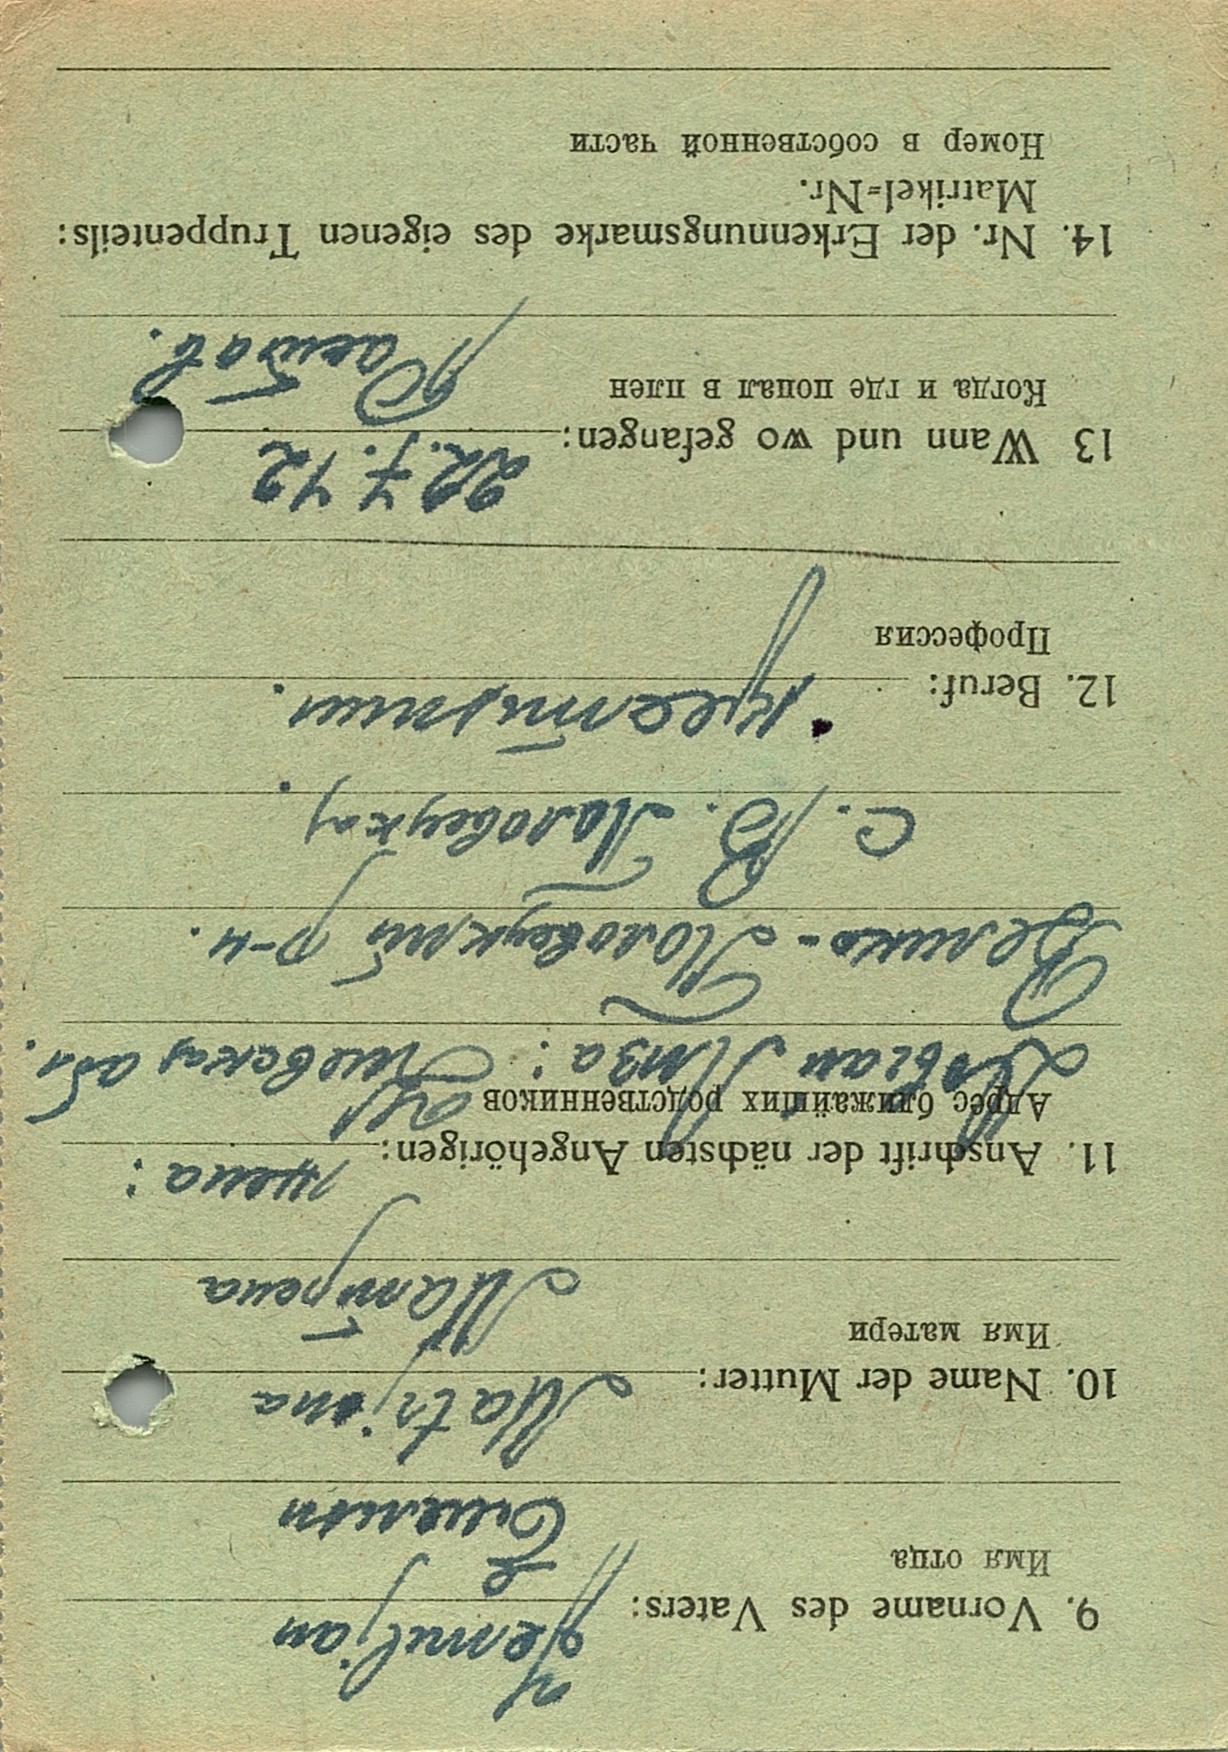 9. Vorname des Vaters: Jemeljan
Имя отца
Емельян
10. Name der Mutter: Matrjona
Имя матери
Матрена
11. Anschrift der nächsten Angehörigen: жена:
Адрес ближайших родственников
Лиза: Киевская обл.
Велико-Половецкий р-н.
с. В. Половецкая.
12. Beruf: крестьянин.
Профессия
13 Wann und wo gefangen: 22.7.42
Когда и где попал в плен
14. Nr. der Erkennungsmarke des eigenen Truppenteils:
Matrikel-Nr.
Номер в собственной части